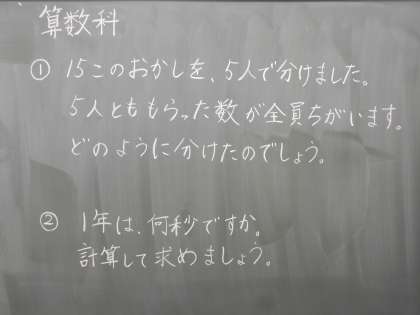 算数科
① 15このおかしを、5人で分けました。
5人とももらった数が全員ちがいます。
どのように分けたのでしょう。
② 1年は、何秒ですか。
計算して求めましょう。